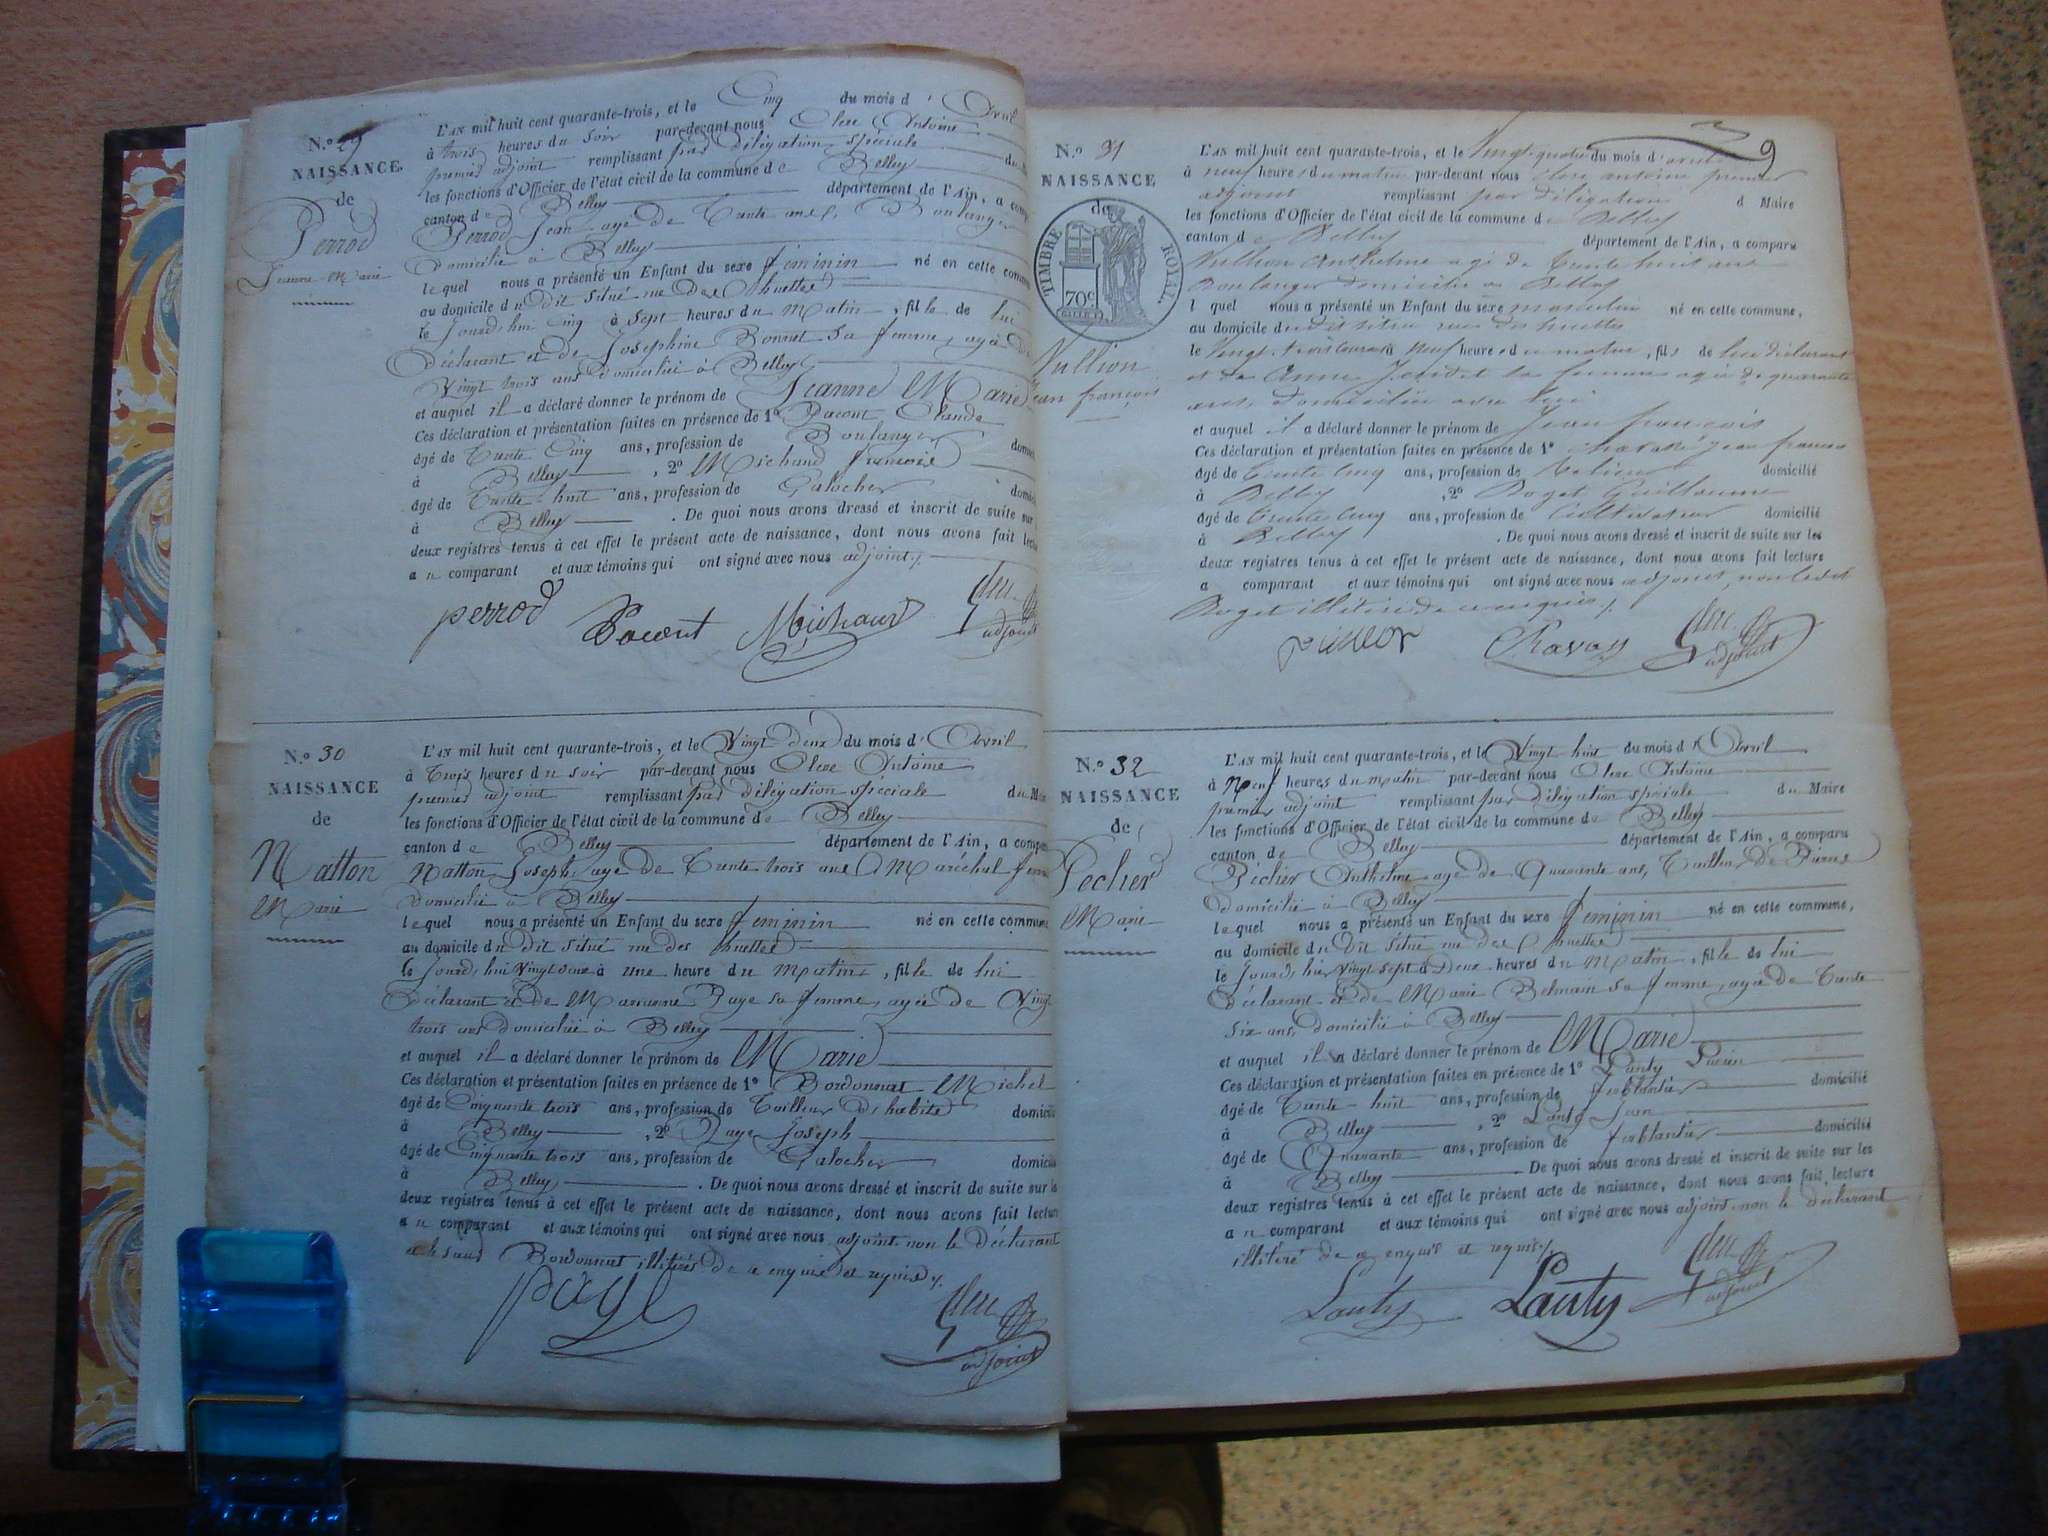 N.º 29
NAISSANCE
de
Perrod
Jeanne Marie
L'AN mil huit cent quarante-trois, et le Cinq du mois d'Avril
à trois heures du soir par-devant nous Clerc Antoine
premier adjoint remplissant par délégation spéciale du
les fonctions d'Officier de l'état civil de la commune de Belley
canton de Belley département de l'Ain, a comp
Perrod Jean agé de Trente ans, Boulanger
domicilié à Belley
lequel nous a présenté un Enfant du sexe féminin né en cette comm
au domicile du dit situé rue des
le Jourd'hui Cinq à Sept heures du Matin, fille de lui
Déclarant et de Josephine Bonnet sa femme, agée de
Vingt trois ans domiciliée à Belley
et auquel il a déclaré donner le prénom de Jeanne Marie
Ces déclaration et présentation faites en présence de 1º Pacout Claude
âgé de Trente Cinq ans, profession de Boulanger domi
à Belley, 2º Michaud françois
âgé de Trente-huit ans, profession de Galocher domici
à Belley. De quoi nous avons dressé et inscrit de suite sur
deux registres tenus à cet effet le présent acte de naissance, dont nous avons fait lectu
au comparant et aux témoins qui ont signé avec nous adjoint
perrod Pacout Michaud Clerc
adjoint
N.º 30
NAISSANCE
de
Matton
Marie
L'AN mil huit cent quarante-trois, et le Vingt deux du mois d'Avril
à Trois heures du soir par-devant nous Clerc Antoine
premier adjoint remplissant par délégation spéciale du Mai
les fonctions d'Officier de l'état civil de la commune de Belley
canton de Belley département de l'Ain, a compa
Matton Joseph, agé de Trente trois ans Maréchal ferra
domicilié à Belley
lequel nous a présenté un Enfant du sexe féminin né en cette commune
au domicile du dit situé rue des
le Jourd'hui vingt deux à une heure du Matin, fille de lui
Déclarant et de Marianne Page sa femme, agée de Vingt
trois ans domiciliée à Belley
et auquel il a déclaré donner le prénom de Marie
Ces déclaration et présentation faites en présence de 1º Bordonnat Michel
âgé de Cinquante trois ans, profession de Tailleur d'habits domicili
à Belley, 2º Page Joseph
âgé de Cinquante trois ans, profession de Galocher domicili
à Belley. De quoi nous avons dressé et inscrit de suite sur le
deux registres tenus à cet effet le présent acte de naissance, dont nous avons fait lectur
au comparant et aux témoins qui ont signé avec nous adjoint non le déclarant
Bordonnat illitérés de ce enquis et requis
page Clerc
adjoint
9
N.º 31
NAISSANCE
de
TIMBRE ROYAL
70c
Vullion
Jean françois
L'AN mil huit cent quarante-trois, et le Vingt quatre du mois d'avril
à neuf heures du matin par-devant nous Clerc antoine premier
adjoint remplissant par délégation d Maire
les fonctions d'Officier de l'état civil de la commune de Belley
canton de Belley département de l'Ain, a comparu
Vullion Anthelme agé de trente huit ans
Boulanger domicilié à Belley
lequel nous a présenté un Enfant du sexe masculin né en cette commune,
au domicile du dit situé rue des
le Vingt trois courant à neuf heures du matin, fils de lui déclarant
et de Anne sa femme agée de quarante
ans, domiciliée avec lui
et auquel il a déclaré donner le prénom de Jean françois
Ces déclaration et présentation faites en présence de 1º jean francois
âgé de trente cinq ans, profession de domicilié
à Belley, 2º Roget Guillaume
âgé de trente cinq ans, profession de cultivateur domicilié
à Belley. De quoi nous avons dressé et inscrit de suite sur les
deux registres tenus à cet effet le présent acte de naissance, dont nous avons fait lecture
a comparant et aux témoins qui ont signé avec nous adjoint, non le dit
Roget illitéré de ce enquis
Clerc
adjoint
N.º 32
NAISSANCE
de
Pechier
Marie
L'AN mil huit cent quarante-trois, et le Vingt huit du mois d'Avril
à Neuf heures du matin par-devant nous Clerc Antoine
premier adjoint remplissant par délégation spéciale du Maire
les fonctions d'Officier de l'état civil de la commune de Belley
canton de Belley département de l'Ain, a comparu
Péchier Anthelme agé de Quarante ans, Tailleur de Pierres
domicilié à Belley
lequel nous a présenté un Enfant du sexe féminin né en cette commune,
au domicile du dit situé rue des
le Jourd'hier vingt sept à Deux heures du Matin, fille de lui
Déclarant et de Marie sa femme, agée de Trente
six ans, domiciliée à Belley
et auquel il a déclaré donner le prénom de Marie
Ces déclaration et présentation faites en présence de 1º Lanty
âgé de Trente-huit ans, profession de ferblantier domicilié
à Belley, 2º Lanty Jean
âgé de Quarante ans, profession de ferblantier domicilié
à Belley. De quoi nous avons dressé et inscrit de suite sur les
deux registres tenus à cet effet le présent acte de naissance, dont nous avons fait lecture
au comparant et aux témoins qui ont signé avec nous adjoint non le déclarant
illitéré de ce enquis et requis
Lanty Lanty Clerc
adjoint